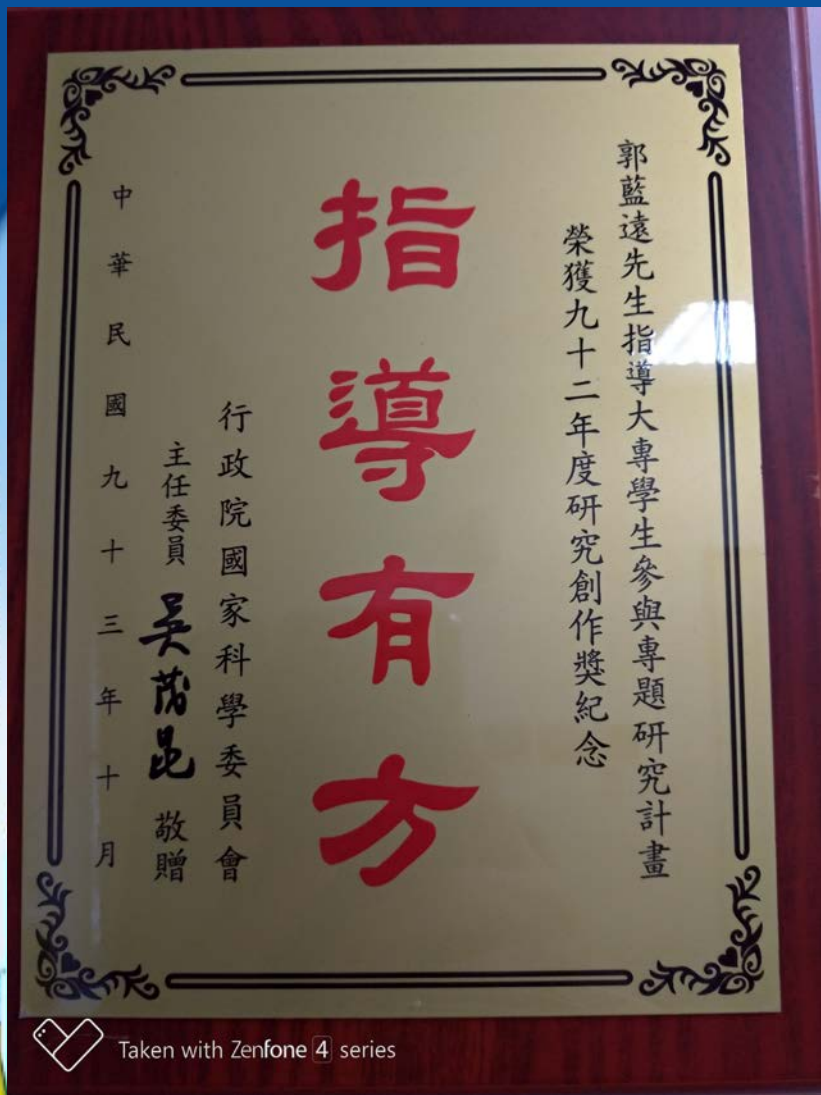 郭藍遠先生指導大專學生參與專題研究計畫
榮獲九十二年度研究創作獎紀念
指導有方
行政院國家科學委員會
主任委員 吳茂昆 敬贈
中華民國九十三年十月
Taken with Zenfone 4 series